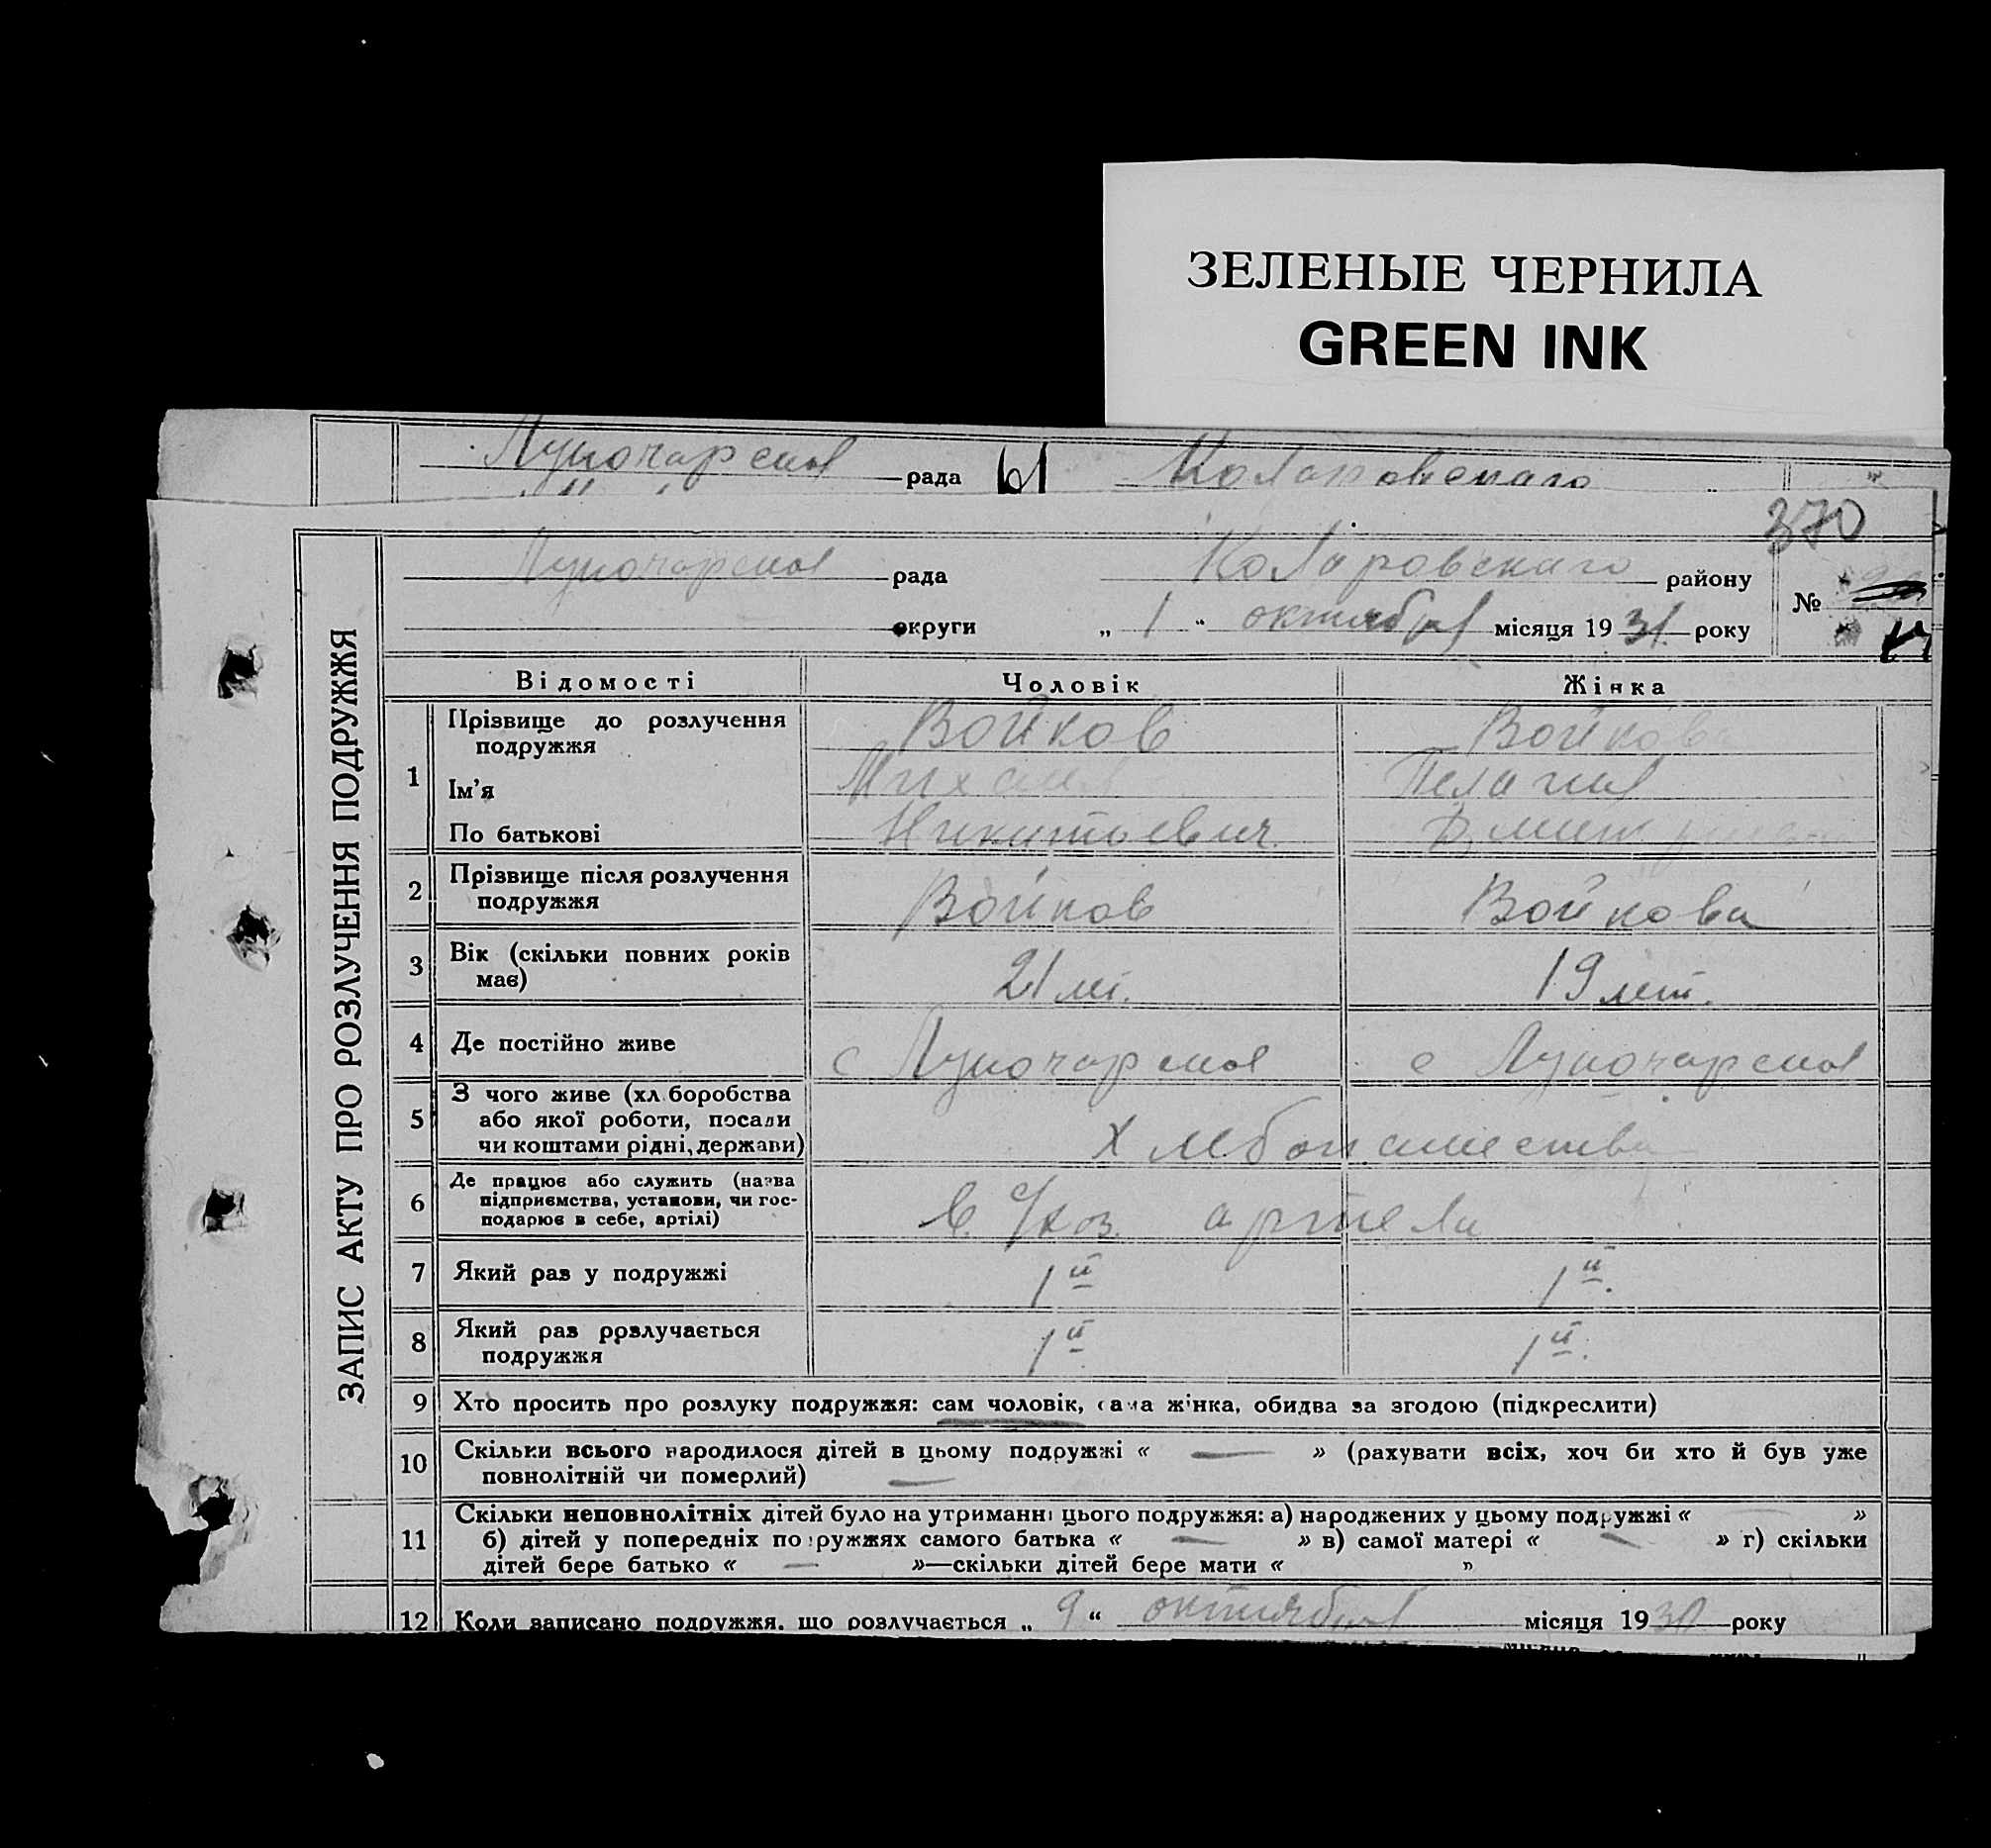 ЗЕЛЕНЫЕ ЧЕРНИЛА
GREEN INK
Луночарская рада 61 Коларовскаго
370
Луночарская рада Коларовскаго району
округи „ 1 “ октября місяця 1931 року №
ЗАПИС АКТУ ПРО РОЗЛУЧЕННЯ ПОДРУЖЖЯ
Відомості Чоловік Жінка
1 Прізвище до розлучення подружжя Войков Войкова
Ім'я Михаил Пелагия
По батькові Никитьевич
2 Прізвище після розлучення подружжя Войков Войкова
3 Вік (скільки повних років має) 21 лет. 19 лет.
4 Де постійно живе с Луночарская с Луночарская
5 З чого живе (хл.боробства або якої роботи, посади чи коштами рідні, держави) Хлебопашества
6 Де працює або служить (назва підприємства, установи, чи господарює в себе, артілі) в с/хоз. артели
7 Який раз у подружжі 1й 1й.
8 Який раз розлучається подружжя 1й 1й.
9 Хто просить про розлуку подружжя: сам чоловік, сама жінка, обидва за згодою (підкреслити)
10 Скільки всього народилося дітей в цьому подружжі « — » (рахувати всіх, хоч би хто й був уже
повнолітній чи померлий) —
11 Скільки неповнолітніх дітей було на утриманні цього подружжя: а) народжених у цьому подружжі « »
б) дітей у попередніх подружжях самого батька « — » в) самої матері « — » г) скільки
дітей бере батько « — »—скільки дітей бере мати « »
12 Коли записано подружжя, що розлучається „ 9 “ октября місяця 1930 року